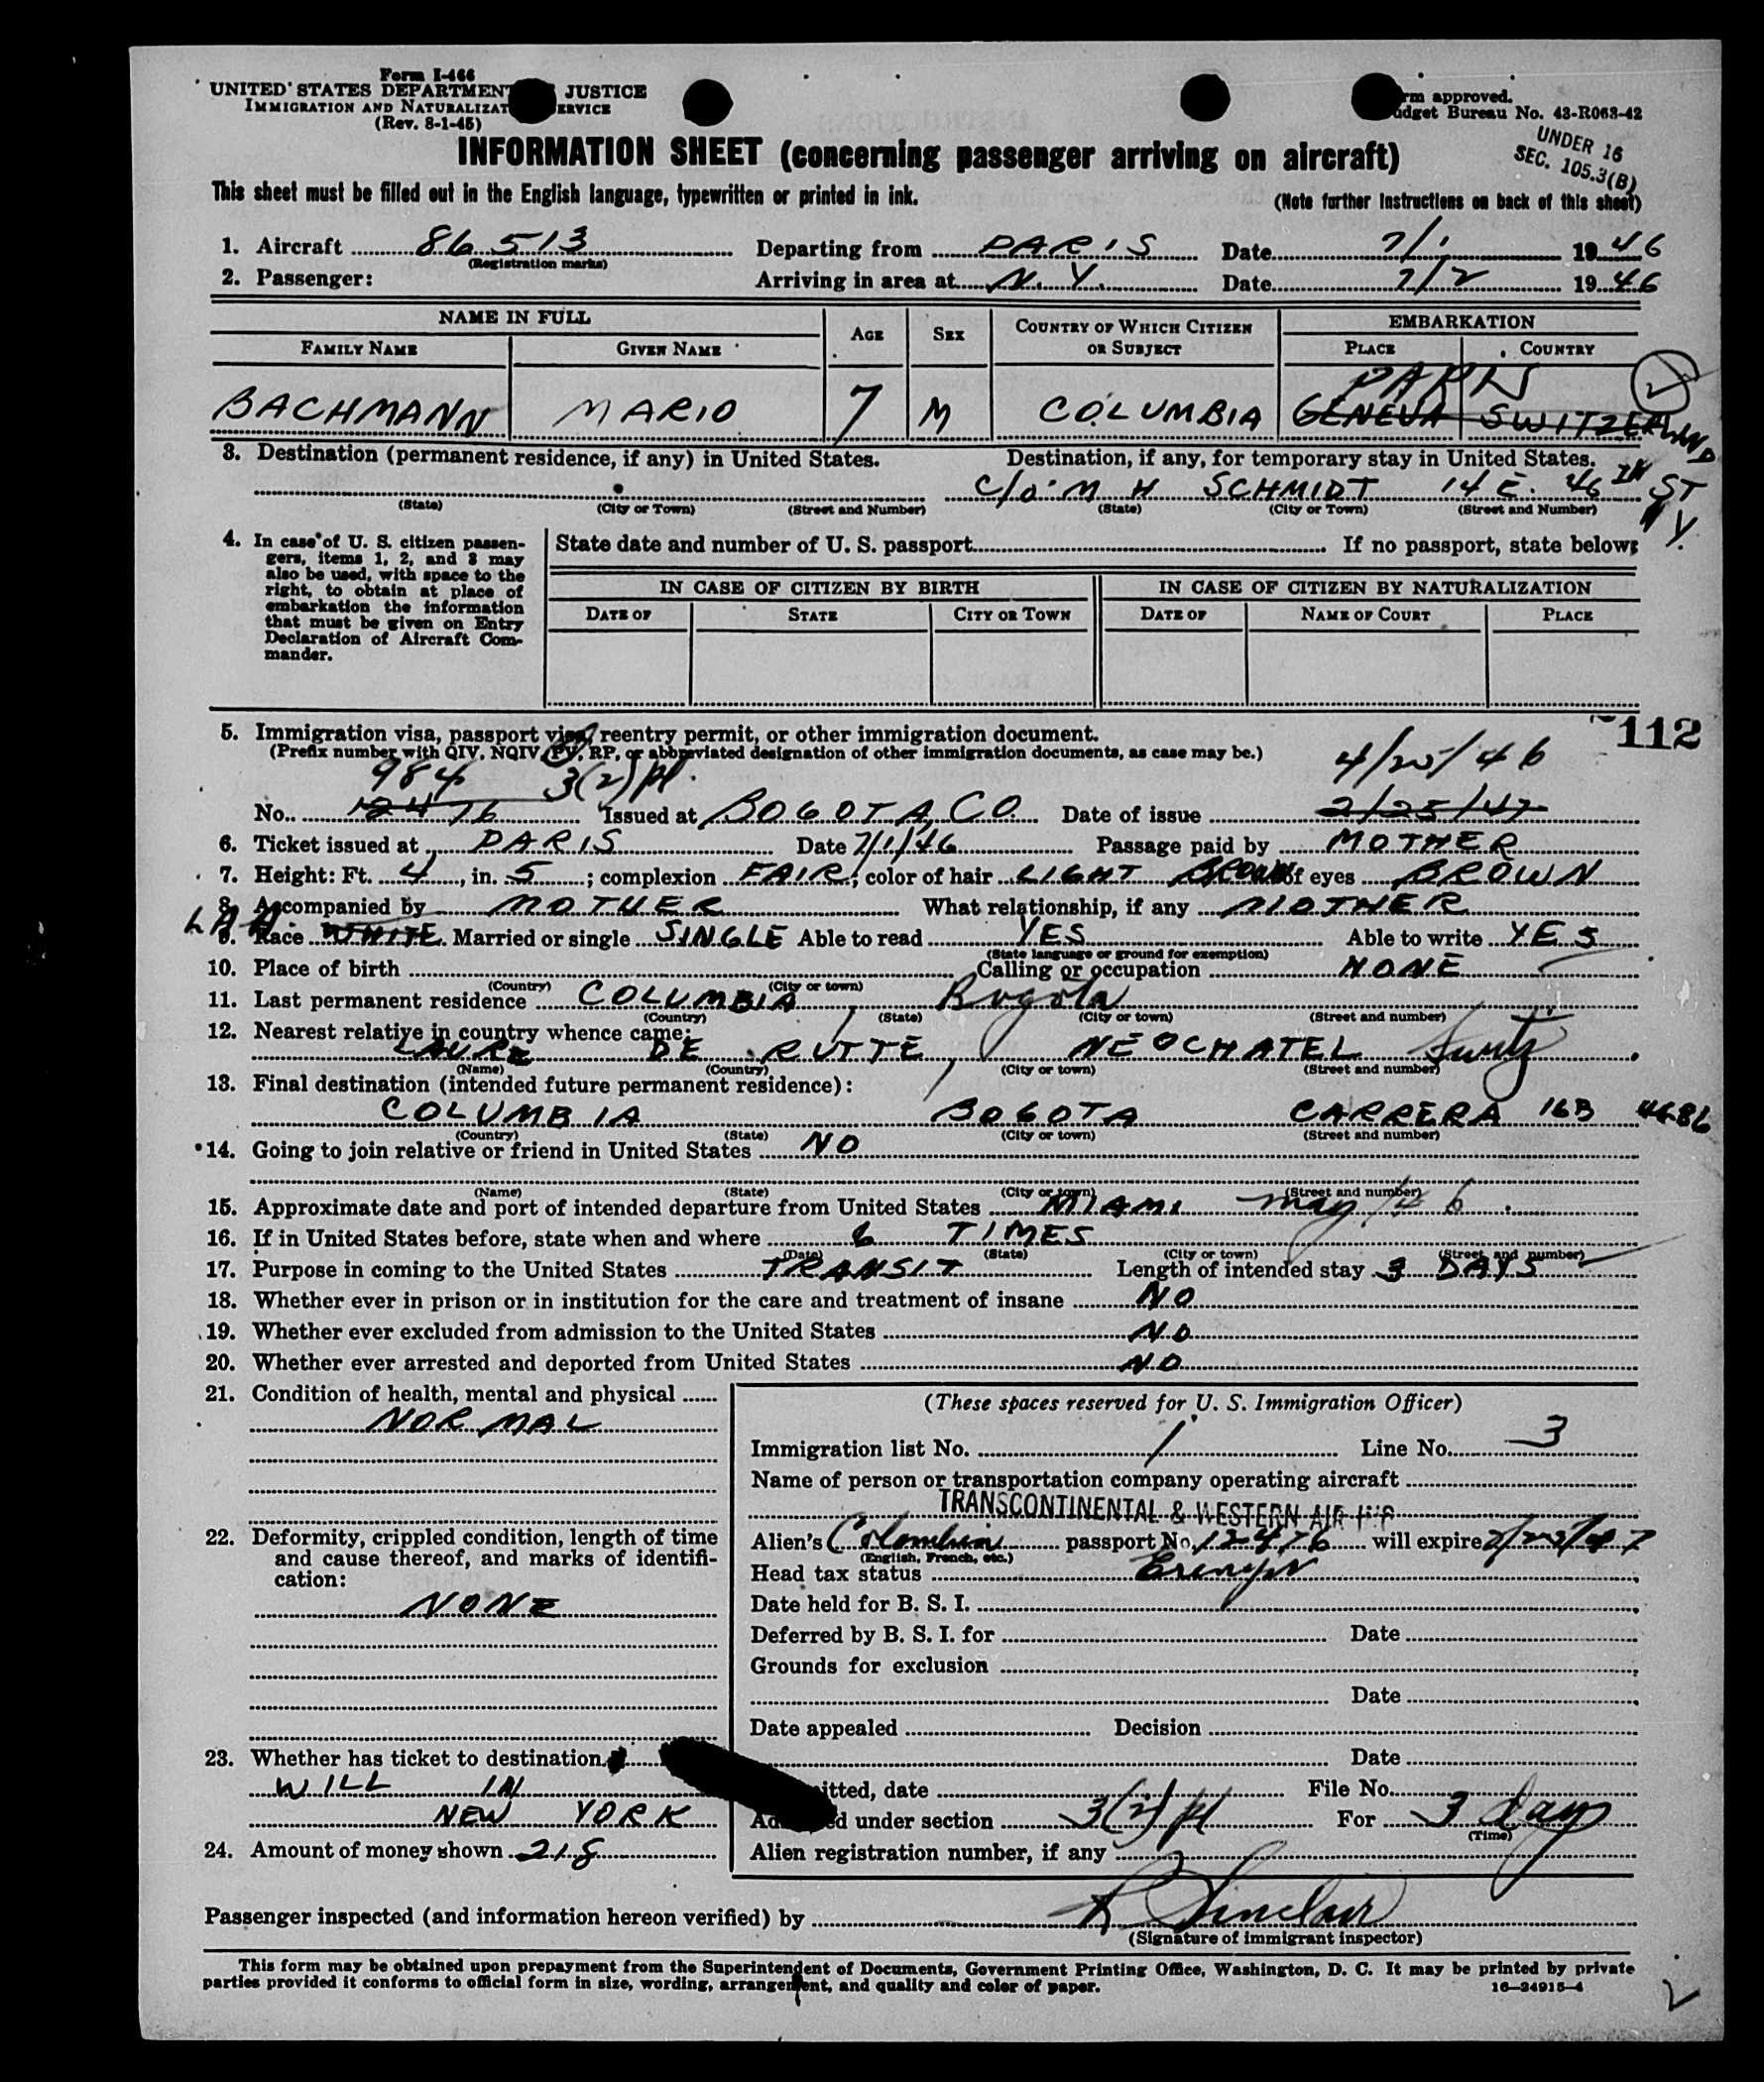 Form I-466
UNITED STATES DEPARTMENT JUSTICE
IMMIGRATION AND NATURALIZAT ERVICE
(Rev. 8-1-45)
rm approved.
udget Bureau No. 43-R063-42
UNDER 16
SEC. 105.3(B)
INFORMATION SHEET (concerning passenger arriving on aircraft)
This sheet must be filled out in the English language, typewritten or printed in ink.
(Note further instructions on back of this sheet)
1. Aircraft 86513 Departing from PARIS Date 7/1 1946
(Registration marks)
2. Passenger: Arriving in area at N.Y. Date 7/2 1946
NAME IN FULL AGE SEX COUNTRY OF WHICH CITIZEN OR SUBJECT EMBARKATION
FAMILY NAME GIVEN NAME PLACE COUNTRY
PARIS
BACHMANN MARIO 7 M COLUMBIA GENEVA SWITZERLAND
3. Destination (permanent residence, if any) in United States. Destination, if any, for temporary stay in United States.
c/o M H SCHMIDT 14 E. 46 TH ST
N Y.
(State) (City or Town) (Street and Number) (State) (City or Town) (Street and Number)
4. In case of U. S. citizen passengers, items 1, 2, and 3 may also be used, with space to the right, to obtain at place of embarkation the information that must be given on Entry Declaration of Aircraft Commander.
State date and number of U. S. passport If no passport, state below:
IN CASE OF CITIZEN BY BIRTH IN CASE OF CITIZEN BY NATURALIZATION
DATE OF STATE CITY OR TOWN DATE OF NAME OF COURT PLACE
112
5. Immigration visa, passport visa, reentry permit, or other immigration document.
(Prefix number with QIV, NQIV, PV, RP, or abbreviated designation of other immigration documents, as case may be.)
984 3(2) pl. 4/25/46
No. 12476 Issued at BOGOTA, CO. Date of issue 2/25/47
6. Ticket issued at PARIS Date 7/1/46 Passage paid by MOTHER
7. Height: Ft. 4, in. 5; complexion FAIR; color of hair LIGHT BROWN of eyes BROWN
8. Accompanied by MOTHER What relationship, if any MOTHER
9. Race WHITE Married or single SINGLE Able to read YES Able to write YES
(State language or ground for exemption)
10. Place of birth Calling or occupation NONE
(Country) (City or town)
11. Last permanent residence COLUMBIA, Bogota
(Country) (State) (City or town) (Street and number)
12. Nearest relative in country whence came:
LAURE DE RUTTE, NEOCHATEL Switz
(Name) (Country) (City or town) (Street and number)
13. Final destination (intended future permanent residence):
COLUMBIA BOGOTA CARRERA 16B 4686
(Country) (State) (City or town) (Street and number)
14. Going to join relative or friend in United States NO
(Name) (State) (City or town) (Street and number)
15. Approximate date and port of intended departure from United States MIAMI May 46
16. If in United States before, state when and where 6 TIMES
(Date) (State) (City or town) (Street and number)
17. Purpose in coming to the United States TRANSIT Length of intended stay 3 DAYS
18. Whether ever in prison or in institution for the care and treatment of insane NO
19. Whether ever excluded from admission to the United States NO
20. Whether ever arrested and deported from United States NO
21. Condition of health, mental and physical
NORMAL
22. Deformity, crippled condition, length of time and cause thereof, and marks of identification:
NONE
23. Whether has ticket to destination
WILL IN
NEW YORK
24. Amount of money shown 218
(These spaces reserved for U. S. Immigration Officer)
Immigration list No. 1 Line No. 3
Name of person or transportation company operating aircraft
TRANSCONTINENTAL & WESTERN AIR INC
Alien's Colombian passport No. 12476 will expire 2/25/47
(English, French, etc.)
Head tax status
Date held for B. S. I.
Deferred by B. S. I. for Date
Grounds for exclusion
Date
Date appealed Decision
Date
itted, date File No.
Ad d under section 3(2) pl For 3 days
(Time)
Alien registration number, if any
Passenger inspected (and information hereon verified) by R Sinclair
(Signature of immigrant inspector)
This form may be obtained upon prepayment from the Superintendent of Documents, Government Printing Office, Washington, D. C. It may be printed by private
parties provided it conforms to official form in size, wording, arrangement, and quality and color of paper.
16—24915-4